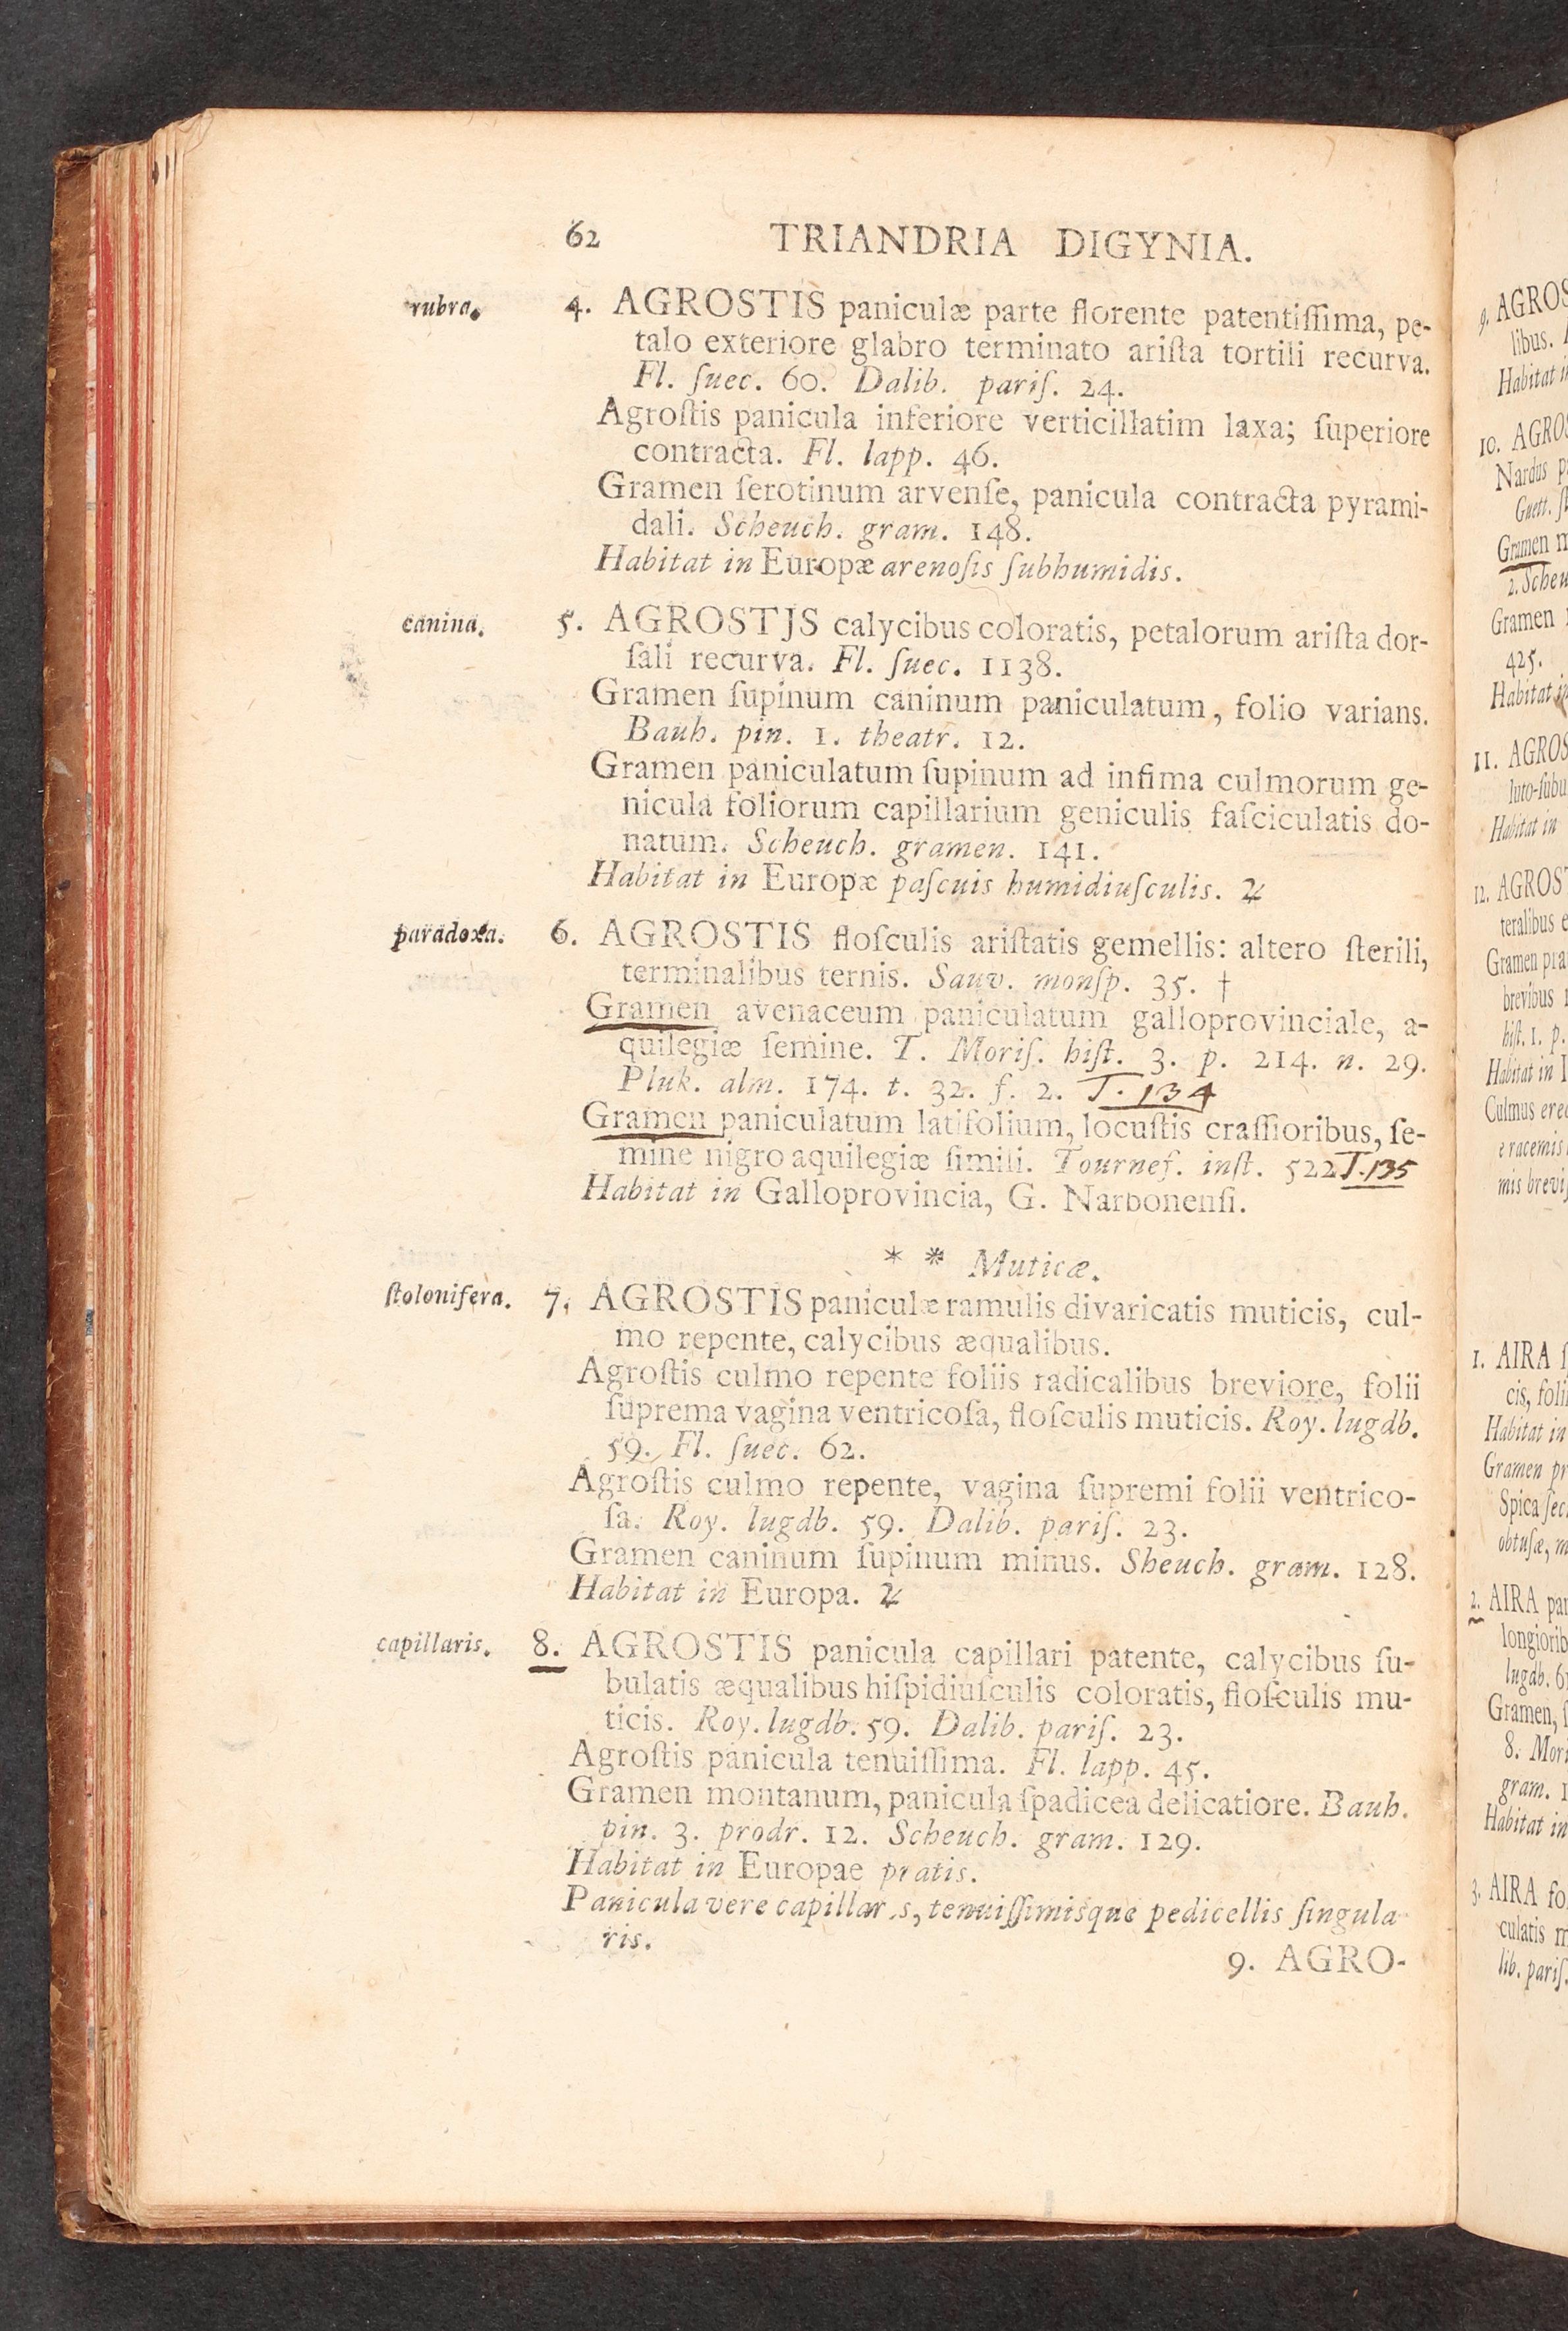 62 TRIANDRIA DIGYNIA.
rubra. 4. AGROSTIS paniculæ parte florente patentiſſima, pe-
talo exteriore glabro terminato ariſta tortili recurva.
Fl. ſuec. 60. Dalib. pariſ. 24.
Agroſtis panicula inferiore verticillatim laxa; ſuperiore
contracta. Fl. lapp. 46.
Gramen ſerotinum arvenſe, panicula contracta pyrami-
dali. Scheuch. gram. 148.
Habitat in Europæ arenoſis ſubhumidis.
canina. 5. AGROSTJS calycibus coloratis, petalorum ariſta dor-
ſali recurva. Fl. ſuec. 1138.
Gramen ſupinum caninum paniculatum, folio varians.
Bauh. pin. 1. theatr. 12.
Gramen paniculatum ſupinum ad infima culmorum ge-
nicula foliorum capillarium geniculis faſciculatis do-
natum. Scheuch. gramen. 141.
Habitat in Europæ paſcuis humidiuſculis. ♃
paradoxa. 6. AGROSTIS floſculis ariſtatis gemellis: altero ſterili,
terminalibus ternis. Sauv. monſp. 35. †
Gramen avenaceum paniculatum galloprovinciale, a-
quilegiæ ſemine. T. Moriſ. hiſt. 3. p. 214. n. 29.
Pluk. alm. 174. t. 32. f. 2. T. 134
Gramen paniculatum latifolium, locuſtis craſſioribus, ſe-
mine nigro aquilegiæ ſimili. Tournef. inſt. 522 T. 135
Habitat in Galloprovincia, G. Narbonenſi.
* * Muticæ.
ſtolonifera. 7. AGROSTIS paniculæ ramulis divaricatis muticis, cul-
mo repente, calycibus æqualibus.
Agroſtis culmo repente foliis radicalibus breviore, folii
ſuprema vagina ventricoſa, floſculis muticis. Roy. lugdb.
59. Fl. ſuec. 62.
Agroſtis culmo repente, vagina ſupremi folii ventrico-
ſa. Roy. lugdb. 59. Dalib. pariſ. 23.
Gramen caninum ſupinum minus. Sheuch. gram. 128.
Habitat in Europa. ♃
capillaris. 8. AGROSTIS panicula capillari patente, calycibus ſu-
bulatis æqualibus hiſpidiuſculis coloratis, floſculis mu-
ticis. Roy. lugdb. 59. Dalib. pariſ. 23.
Agroſtis panicula tenuiſſima. Fl. lapp. 45.
Gramen montanum, panicula ſpadicea delicatiore. Bauh.
pin. 3. prodr. 12. Scheuch. gram. 129.
Habitat in Europae pratis.
Panicula vere capillar s, tenuiſſimisque pedicellis ſingula
ris.
9. AGRO-
9. AGROS
libus.
Habitat
10. AGROS
Nardus
Guett.
Gramen
2. Scheu
Gramen
425.
Habitat
11. AGROS
luto-ſubu
Habitat in
12. AGROST
teralibus
Gramen pra
brevibus
hiſt. 1. p.
Habitat in
Culmus erec
e racemis
mis brevi
1. AIRA
cis, foli
Habitat in
Gramen pr
Spica
obtuſæ,
2. AIRA pa
longiorib
lugdb.
Gramen,
8. Mori
gram.
Habitat in
3. AIRA fo
culatis
lib. pariſ.